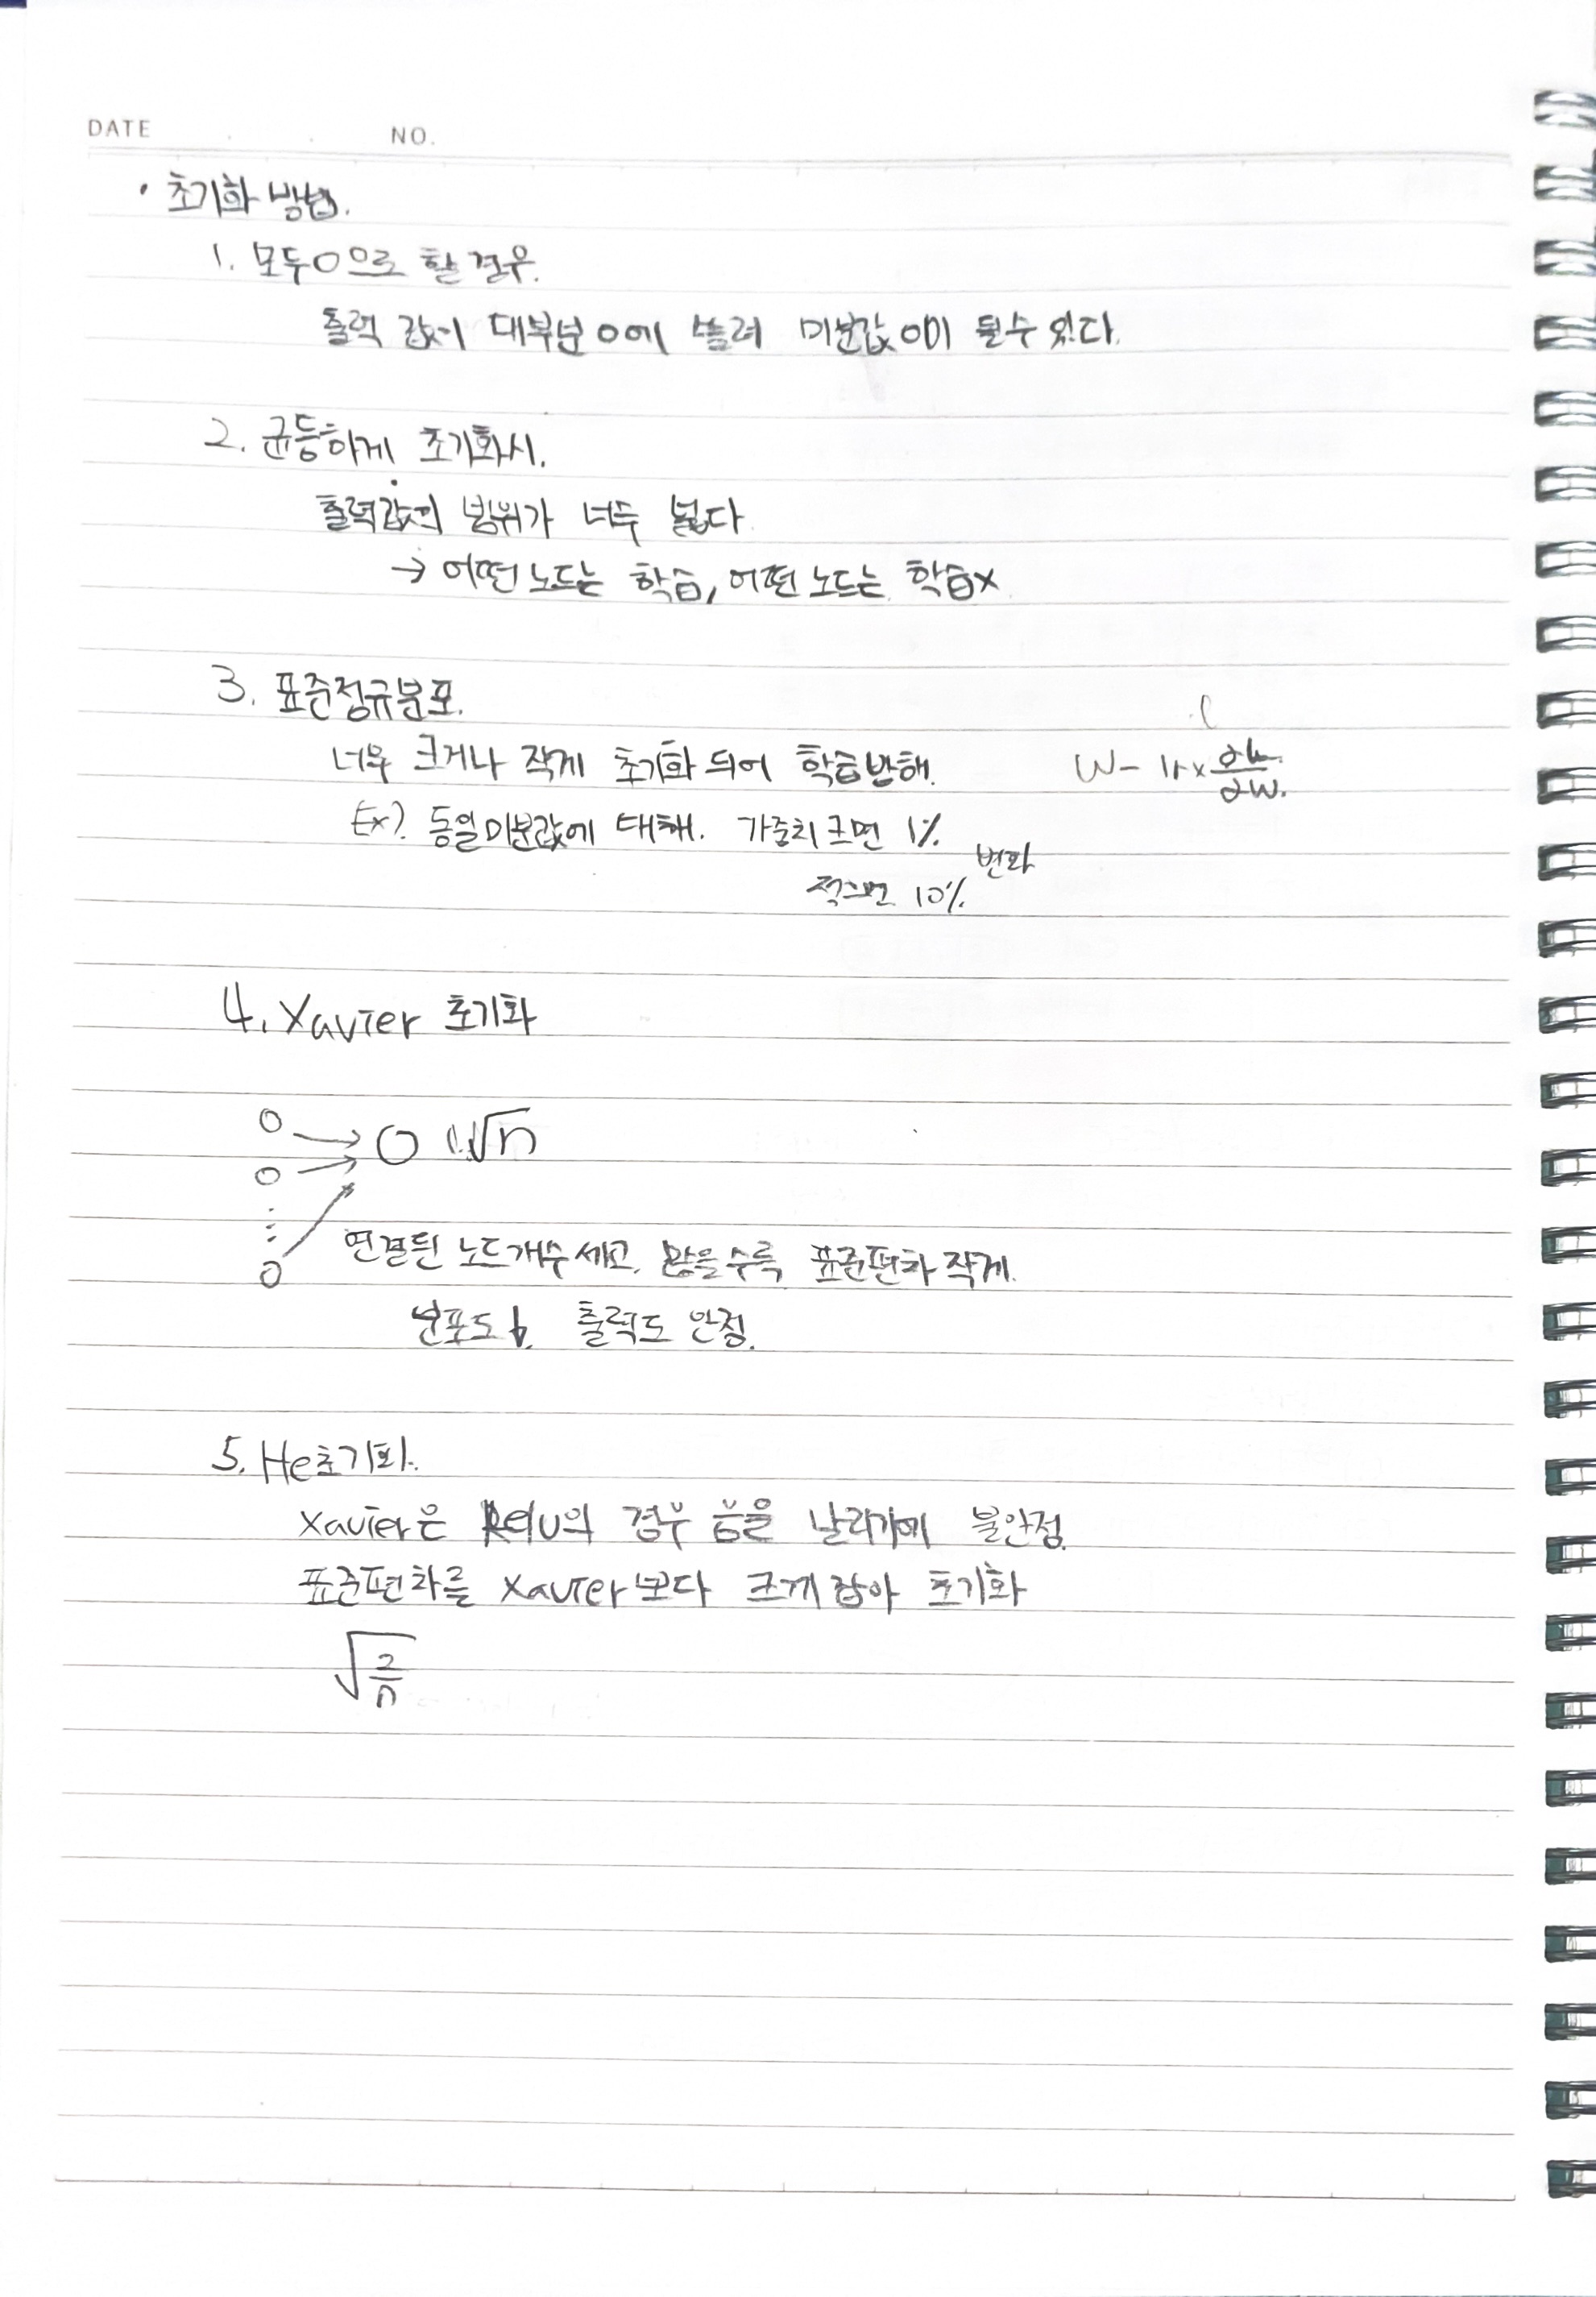 DATE . . NO.
· 초기화 방법.
1. 모두 0으로 할 경우.
출력 값이 대부분 0에 쏠려 미분값 0이 될 수 있다.
2. 균등하게 초기화시.
출력값의 범위가 너무 넓다
→ 어떤 노드는 학습, 어떤 노드는 학습x
3. 표준정규분포.
너무 크거나 작게 초기화 되어 학습방해.
W - lr × ∂L/∂W.
Ex). 동일 미분값에 대해. 가중치 크면 1%
적으면 10% 변화
4. Xavier 초기화
√n
연결된 노드 개수 세고, 많을수록 표준편차 작게.
분포도 출력도 안정.
5. He초기화.
Xavier은 Relu의 경우 음을 날리기에 불안정.
표준편차를 Xavier보다 크게 잡아 초기화
√(2/n)